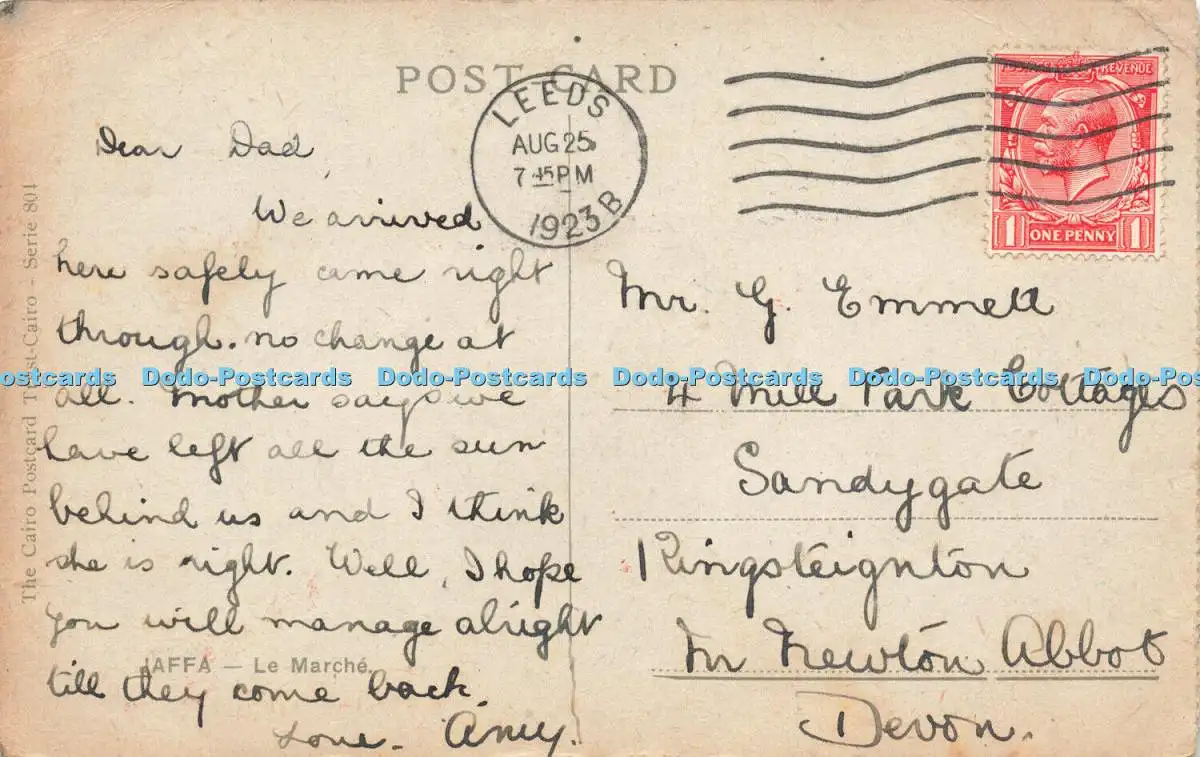 POST CARD
LEEDS
AUG 25
7 45 PM
1923 B
POSTAGE REVENUE
1 ONE PENNY 1
Dear Dad
We arrived
here safely came right
through. no change at
all. Mother says we
have left all the sun
behind us and I think
she is right. Well, I hope
you will manage alright
till they come back.
Love. Amy.
Mr. G. Emmett
4 Mill Park Cottages
Sandygate
Kingsteignton
Nr Newton Abbot
Devon.
The Cairo Postcard Trust-Cairo - Serie 801
JAFFA — Le Marché
Dodo-Postcards Dodo-Postcards Dodo-Postcards Dodo-Postcards Dodo-Postcards